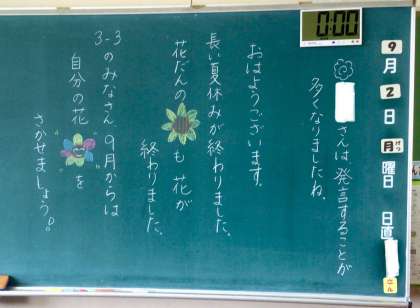 0:00
9月2日月曜日 日直
さんは、発言することが
多くなりましたね。
おはようございます。
長い夏休みが終わりました。
花だんの も 花が
終わりました。
3-3のみなさん、9月からは
自分の花 を
さかせましょう。